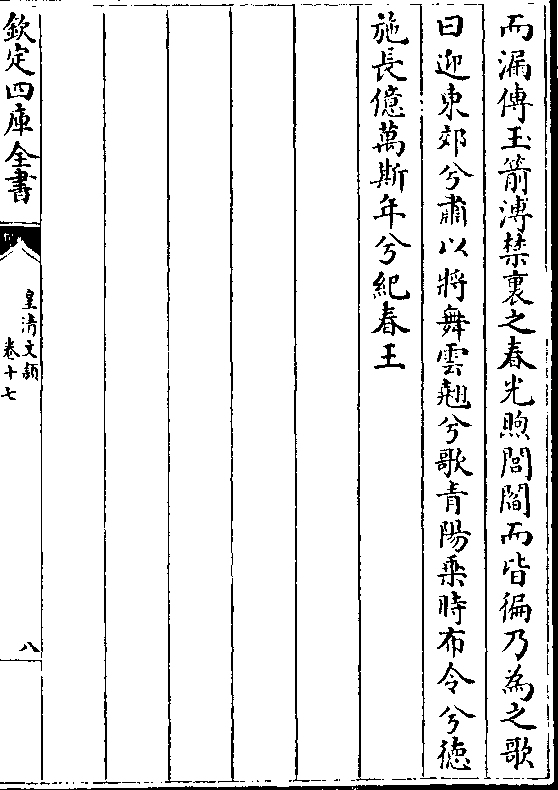 而漏傳玉箭溥禁裏之春光煦閭閻而皆徧乃為之歌
曰迎東郊兮肅以將舞雲翹兮歌青陽乘時布令兮德
施長億萬斯年兮紀春王
欽定四庫全書
皇清文穎
卷十七
八